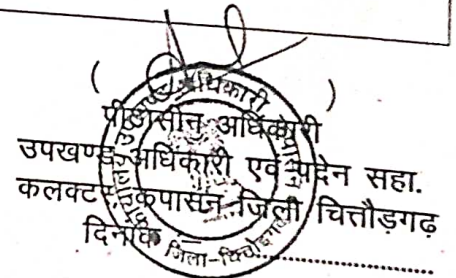 ( )
पीठासीन अधिकारी
उपखण्ड अधिकारी एवं पदेन सहा.
कलक्टर कपासन जिला चित्तौड़गढ़
दिनांक
जिला-चित्तौड़गढ़